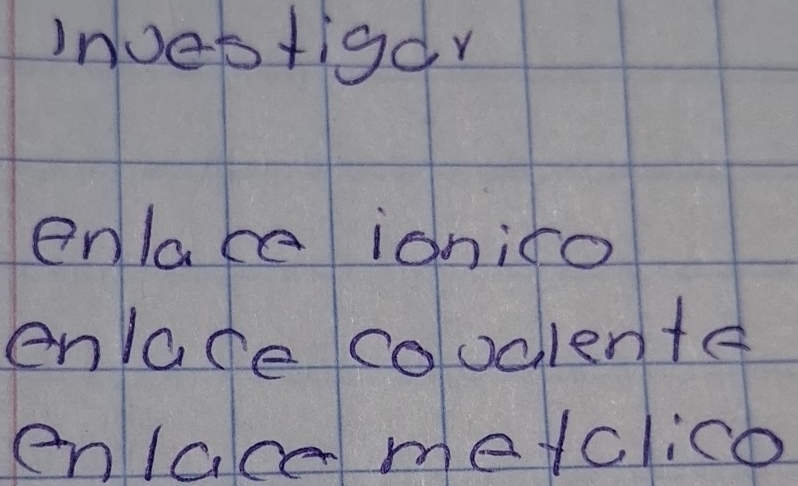 Investigar
enlace ionico
enlace covalente
enlace metalico